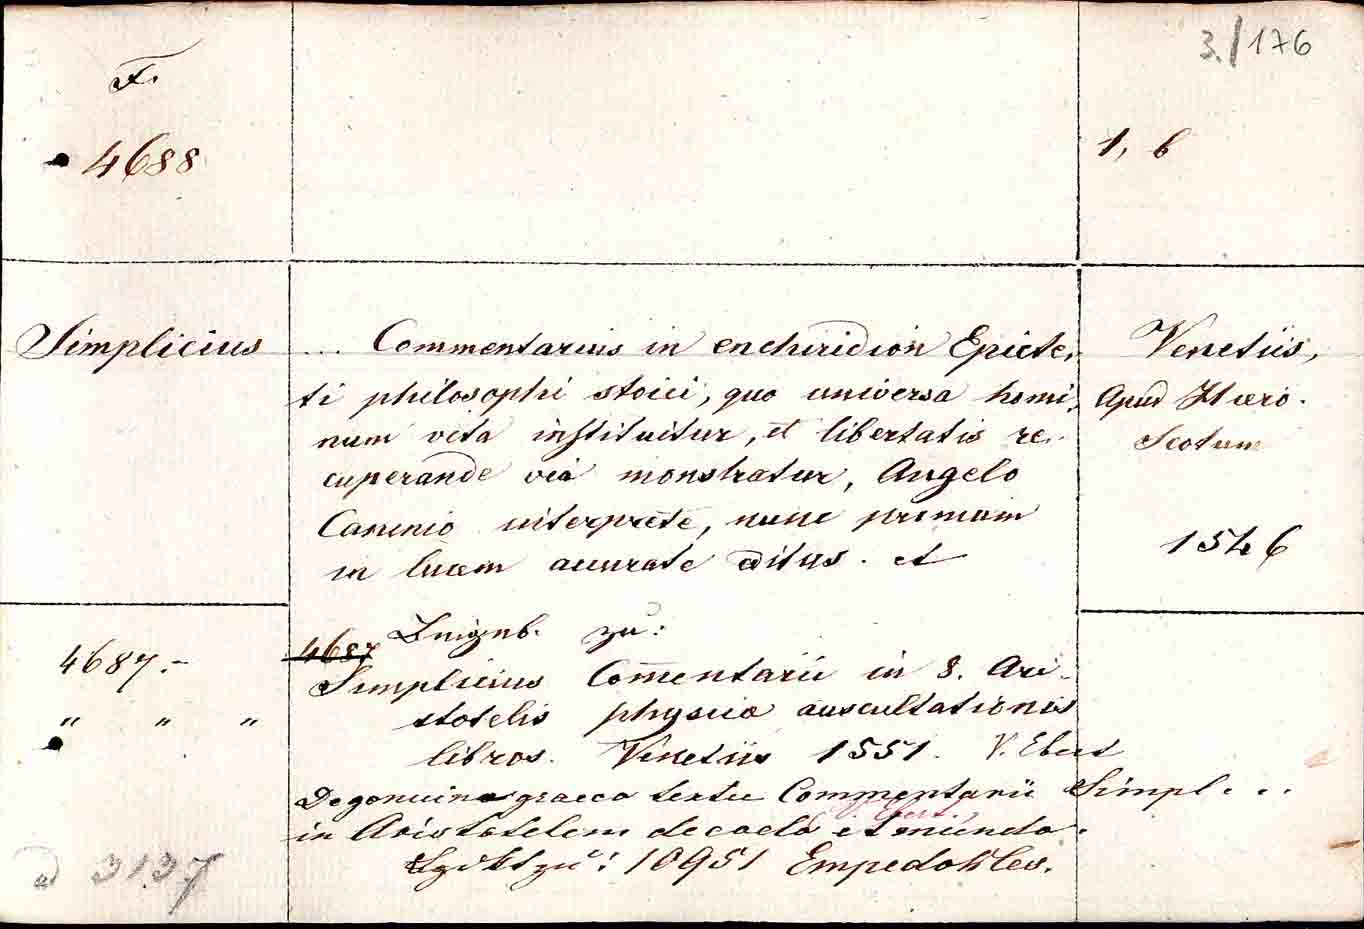 3./176
F.
4688
1, b
Simplicius
... Commentarius in enchiridion Epicte-
ti philosophi stoici, quo universa homi-
num vita instituitur, et libertatis re-
cuperande via monstratur, Angelo
Caninio interprete, nunc primum
in lucem accurate editus. et
Venetiis,
Apud Hiero.
Scotum
1546
4687.-
" " "
zu:
4687
Simplicius Com̄entarii in 8. Ari-
stotelis physica auscultationis
libros. Venetiis 1551. V. Ebert
De genuino graeco textu Commentarii Simpl...
V. Ebert.,
in Aristotelem de caelo et mundo.
zu: 10951 Empedokles.
ad 3137